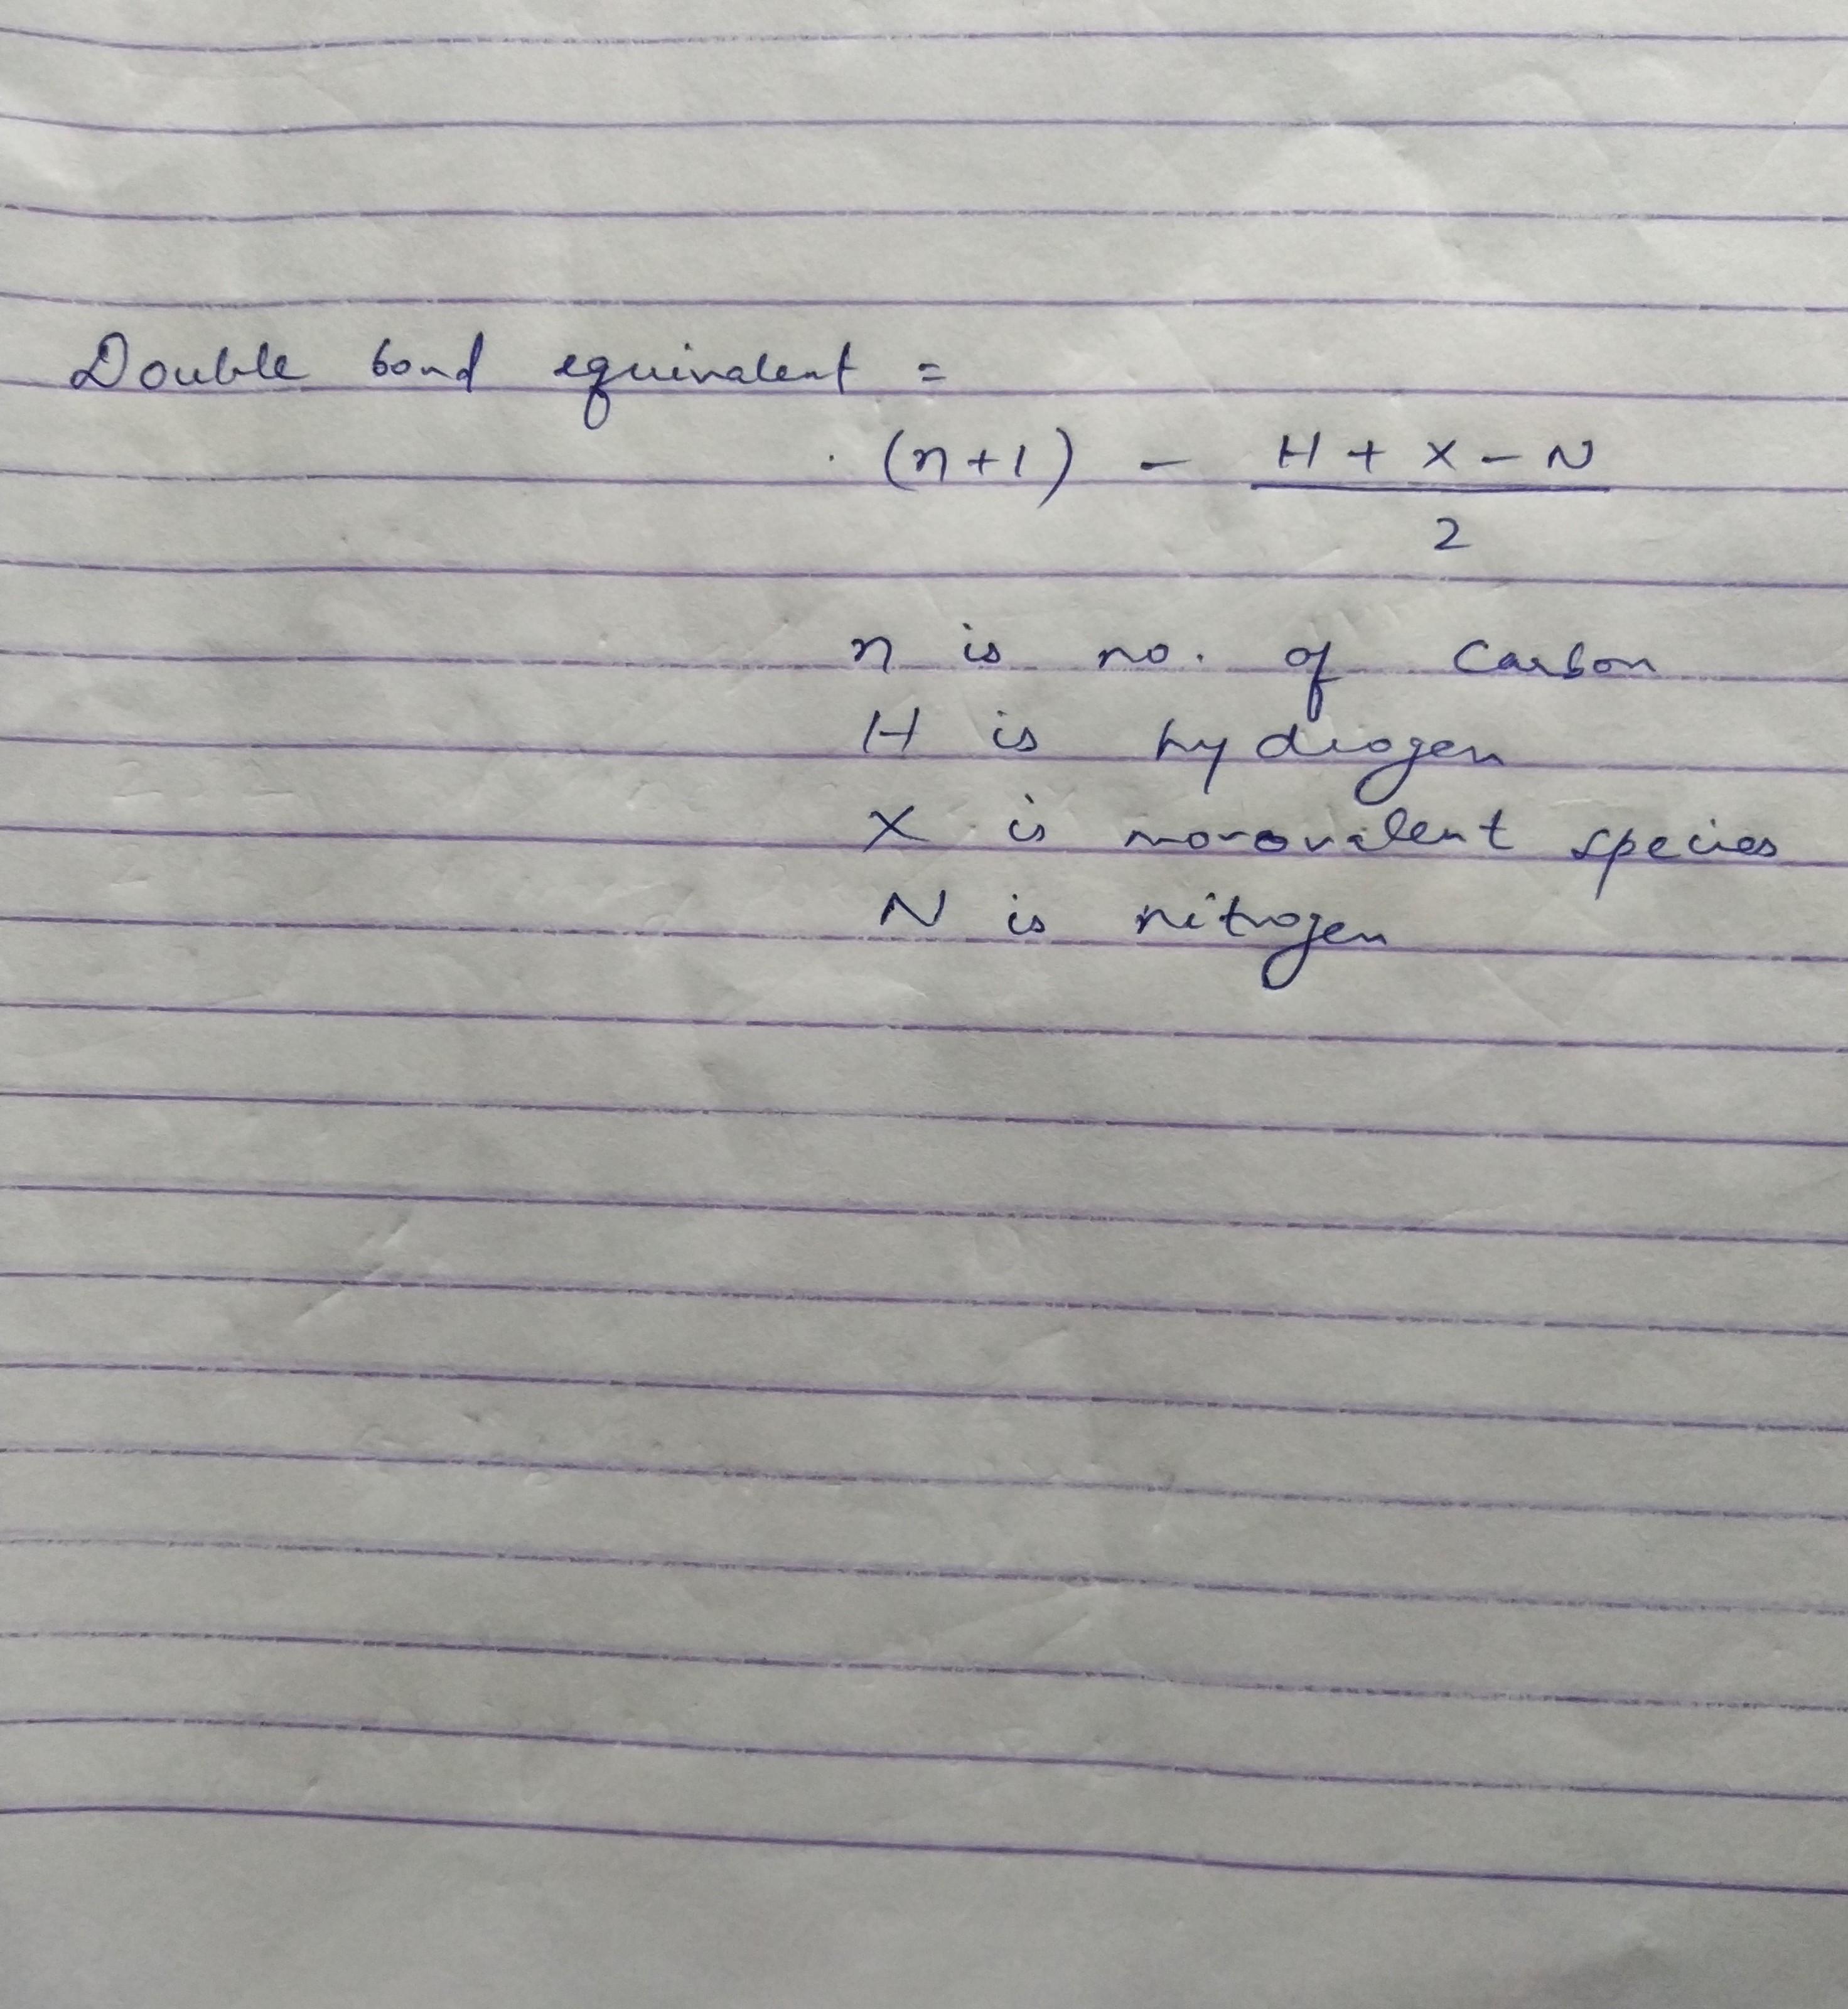 Double bond equivalent =
(n+1) - H + X - N
2
n is no. of Carbon
H is hydrogen
X is monovalent species
N is nitrogen